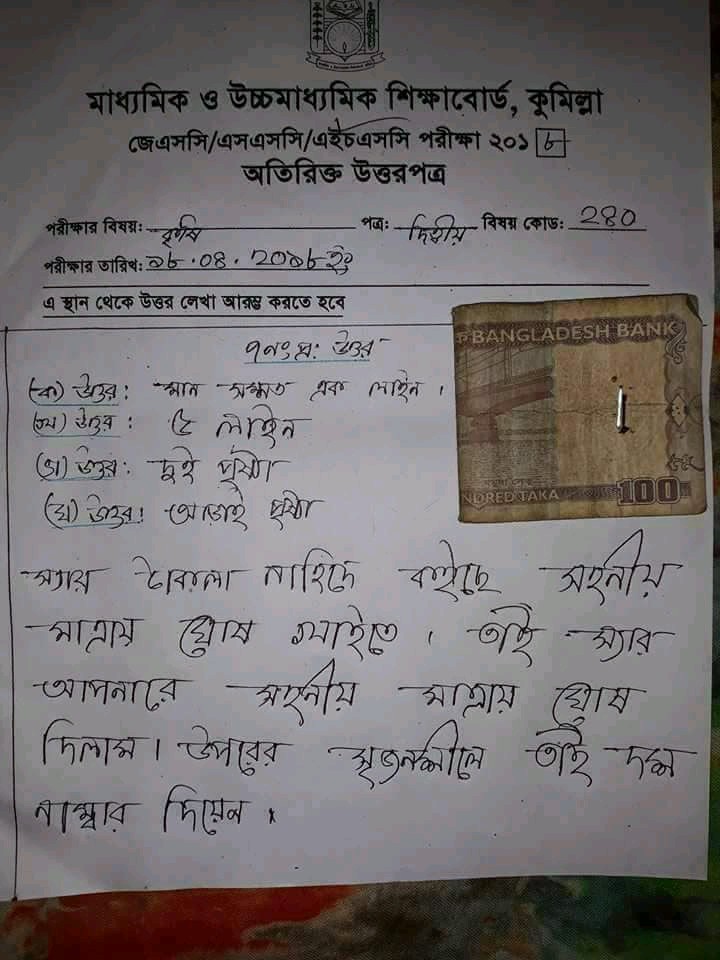 মাধ্যমিক ও উচ্চমাধ্যমিক শিক্ষাবোর্ড, কুমিল্লা
জেএসসি/এসএসসি/এইচএসসি পরীক্ষা ২০১৮
অতিরিক্ত উত্তরপত্র
পরীক্ষার বিষয়: কৃষি পত্র: দ্বিতীয় বিষয় কোড: 280
পরীক্ষার তারিখ: ১৮.০৪.২০১৮ ইং
এ স্থান থেকে উত্তর লেখা আরম্ভ করতে হবে
৭নং প্র: উত্তর
(ক) উত্তর: মান সম্মত এক লাইন।
(খ) উত্তর: ৫ লাইন
(গ) উত্তর: দুই পৃষ্ঠা
(ঘ) উত্তর: আড়াই পৃষ্ঠা
BANGLADESH BANK
NDRED TAKA
100
স্যার নাহিদে কইছে সহনীয়
মাত্রায় ঘোষ খাইতে। তাই স্যার
আপনারে সহনীয় মাত্রায় ঘোষ
দিলাম। উপরের সৃজনশীলে তাই দশ
নাম্বার দিয়েন।